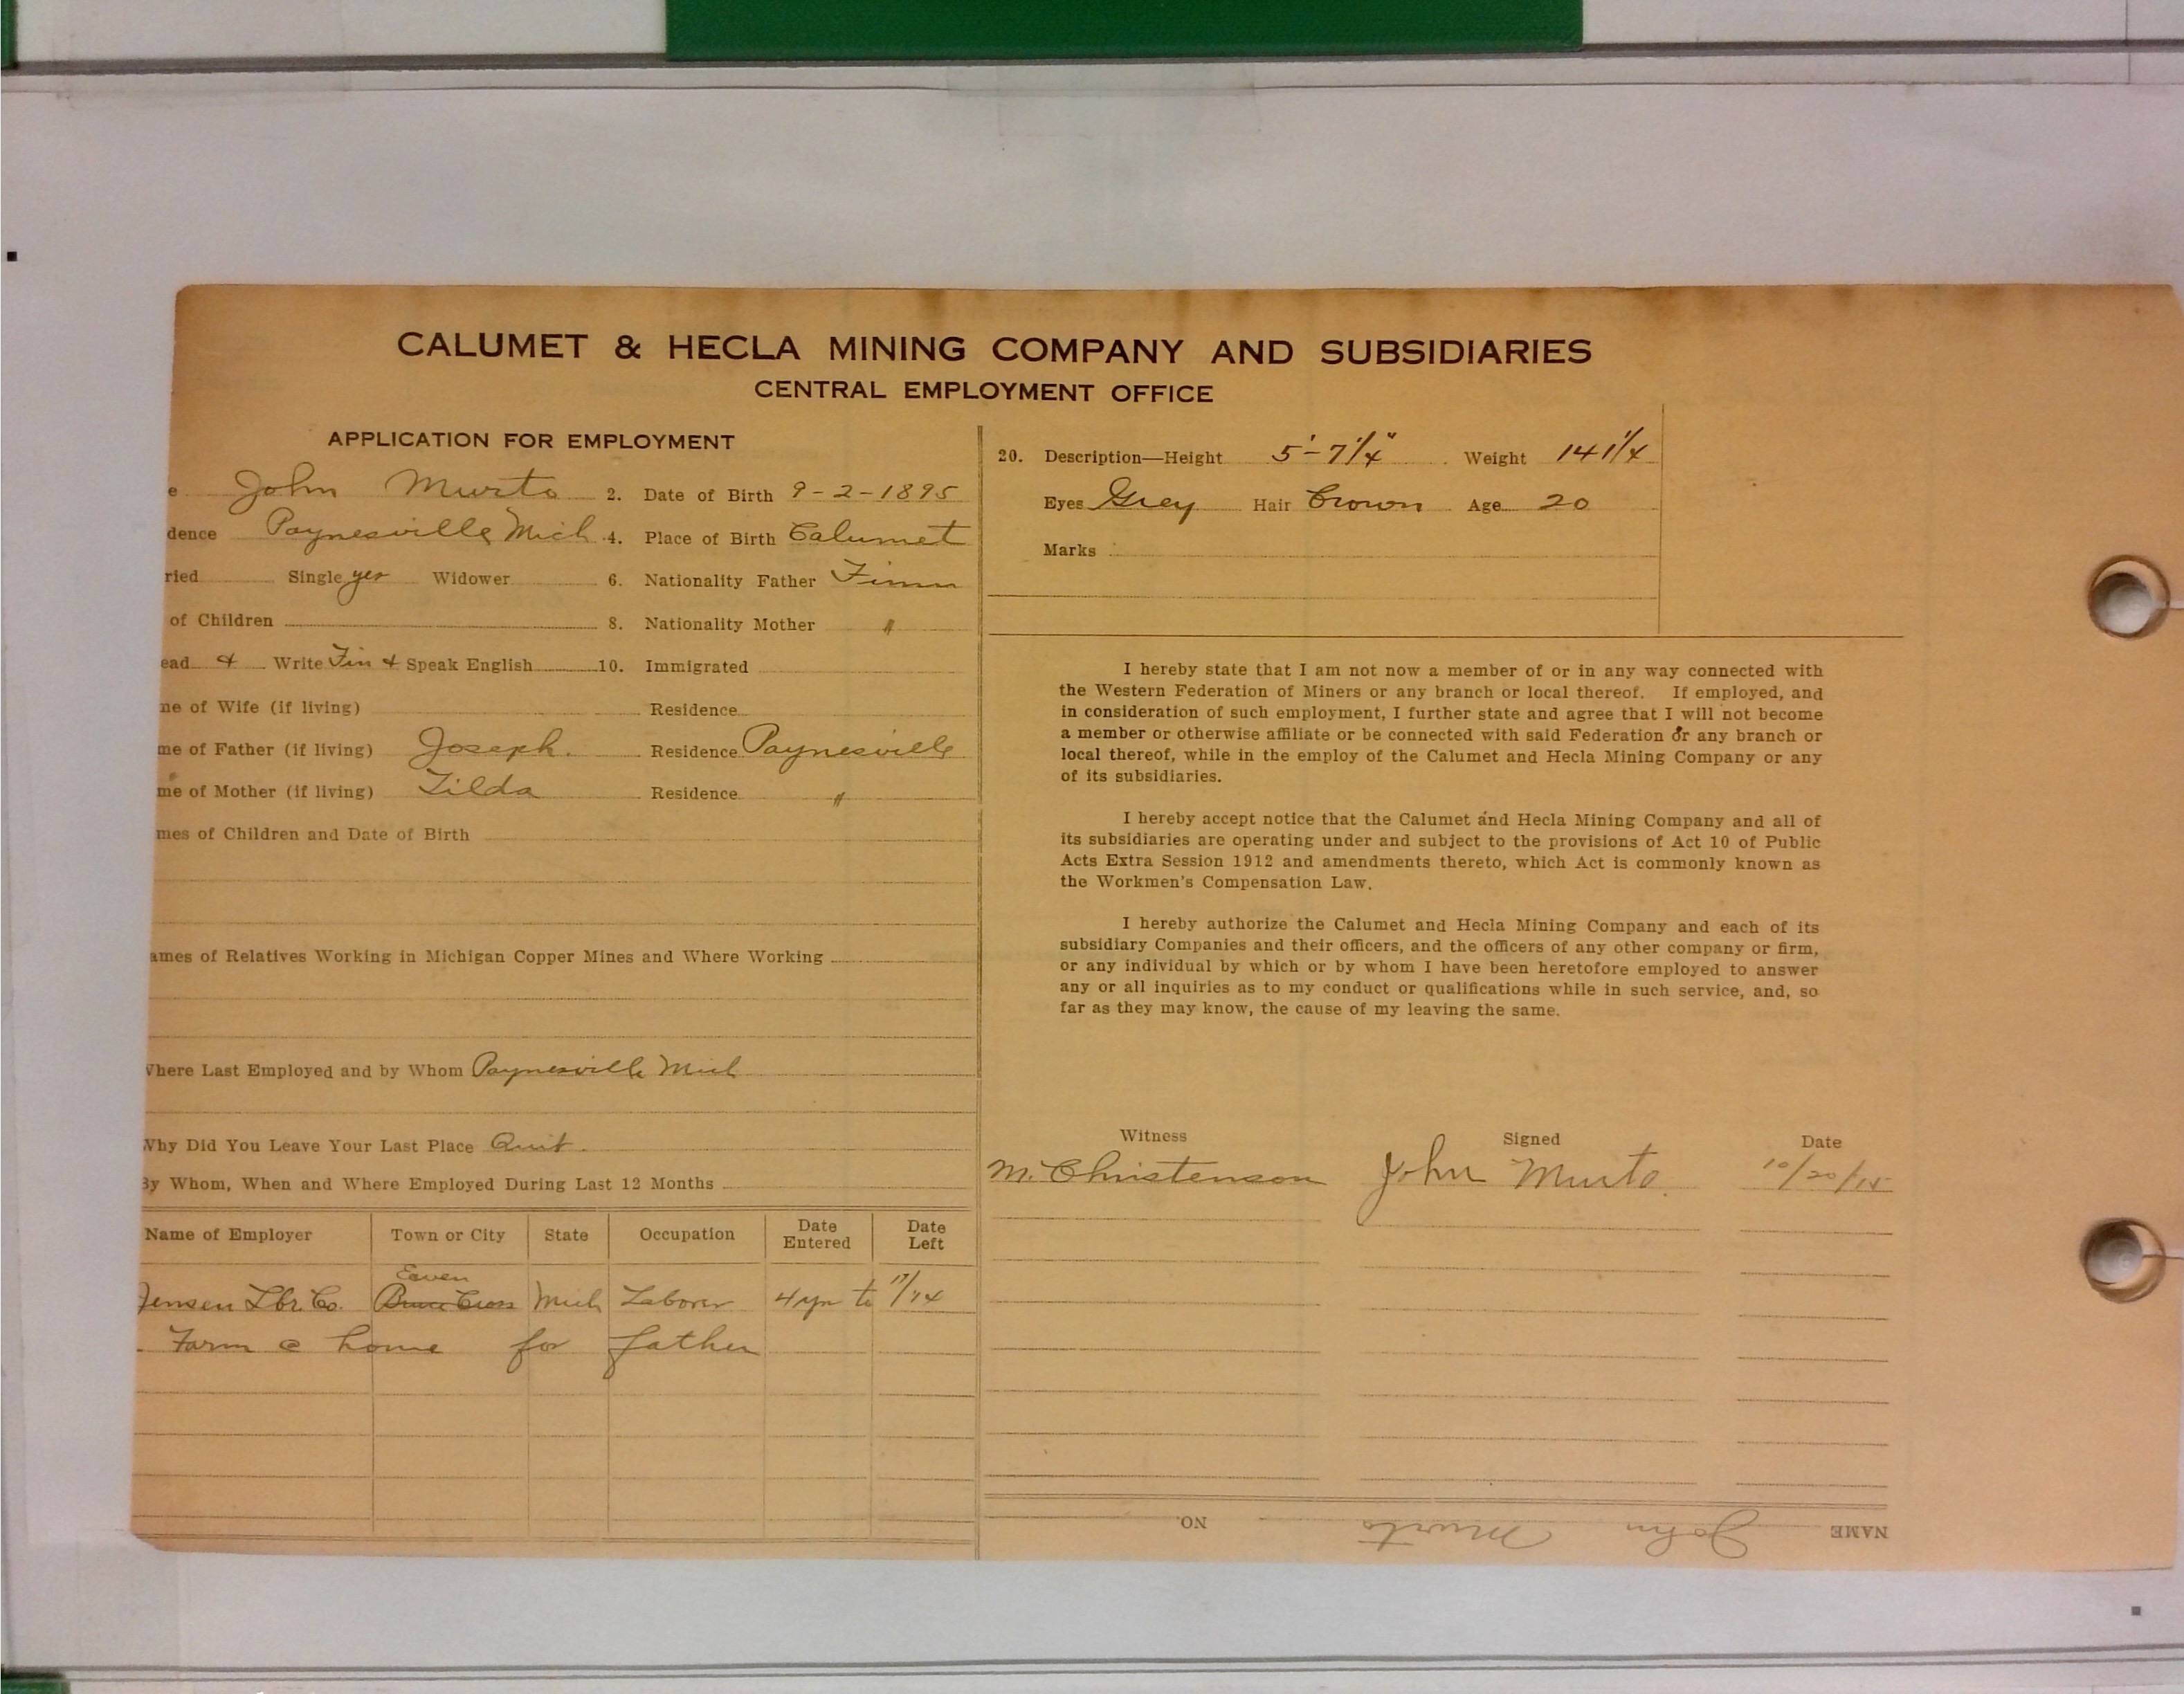 CALUMET & HECLA MINING COMPANY AND SUBSIDIARIES
CENTRAL EMPLOYMENT OFFICE
APPLICATION FOR EMPLOYMENT
e John Murto 2. Date of Birth 9-2-1895
dence Paynesville Mich 4. Place of Birth Calumet
ried Single yes Widower 6. Nationality Father Finn
of Children 8. Nationality Mother "
ead & Write Fin & Speak English 10. Immigrated
ne of Wife (if living) Residence
me of Father (if living) Joseph. Residence Paynesville
me of Mother (if living) Tilda Residence "
mes of Children and Date of Birth
ames of Relatives Working in Michigan Copper Mines and Where Working
Where Last Employed and by Whom Paynesville Mich
Why Did You Leave Your Last Place Quit.
By Whom, When and Where Employed During Last 12 Months
Name of Employer Town or City State Occupation Date Entered Date Left
Ewen
Jensen Lbr. Co. Bruce Cross Mich Laborer 4 yrs to 11/14
Farm @ home for father
20. Description—Height 5'-7 1/4" Weight 141 1/4
Eyes Grey Hair Brown Age 20
Marks
I hereby state that I am not now a member of or in any way connected with
the Western Federation of Miners or any branch or local thereof. If employed, and
in consideration of such employment, I further state and agree that I will not become
a member or otherwise affiliate or be connected with said Federation or any branch or
local thereof, while in the employ of the Calumet and Hecla Mining Company or any
of its subsidiaries.
I hereby accept notice that the Calumet and Hecla Mining Company and all of
its subsidiaries are operating under and subject to the provisions of Act 10 of Public
Acts Extra Session 1912 and amendments thereto, which Act is commonly known as
the Workmen's Compensation Law.
I hereby authorize the Calumet and Hecla Mining Company and each of its
subsidiary Companies and their officers, and the officers of any other company or firm,
or any individual by which or by whom I have been heretofore employed to answer
any or all inquiries as to my conduct or qualifications while in such service, and, so
far as they may know, the cause of my leaving the same.
Witness Signed Date
M. Christenson John Murto. 10/20/15
NAME John Murto NO.